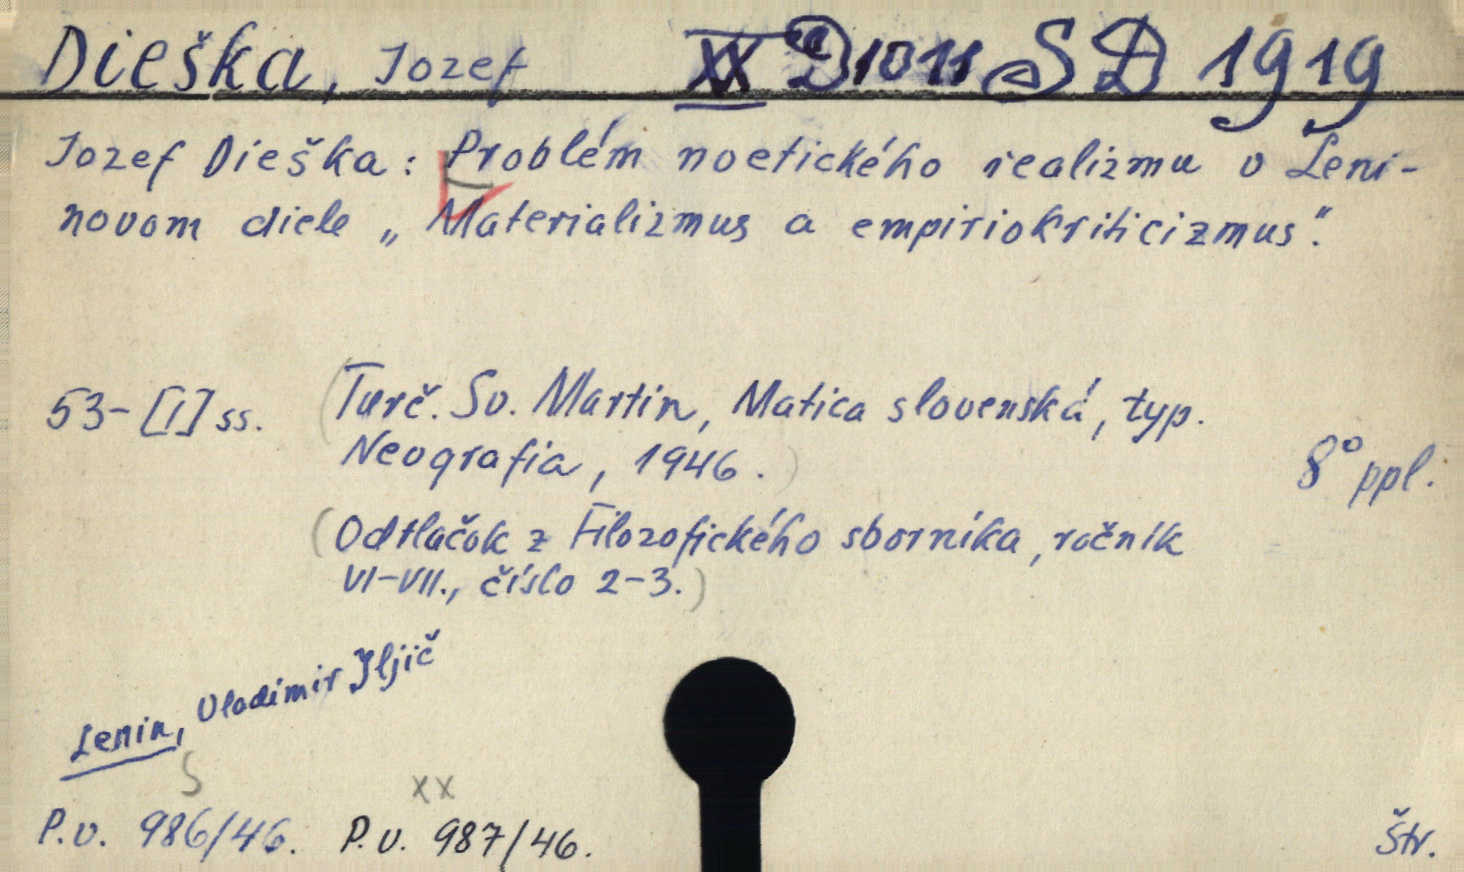 Dieška, Jozef XX D 1011 SD 1919
Jozef Dieška: Problém noetického realizmu v Leni-
novom diele „Materializmus a empiriokriticizmus".
53-[1] ss. (Turč. Sv. Martin, Matica slovenská, typ.
Neografia, 1946.)
8° ppl.
(Odtlačok z Filozofického sborníka, ročník
VI-VII., číslo 2-3.)
Lenin, Vladimir Iljič
S
xx
P.v. 986/46. P.v. 987/46.
Štr.